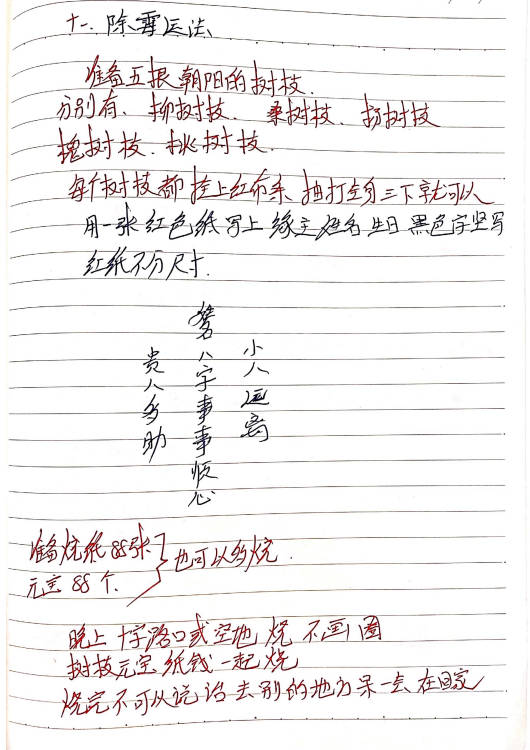 十一. 除霉运法
准备五根朝阳的树枝.
分别有、柳树枝、桑树枝、杨树枝
槐树枝. 桃树枝.
每个树枝都挂上红布条 抽打全身三下就可以
用一张红色纸写上缘主姓名生日黑色字竖写
红纸不分尺寸.
小人远离
姓名八字事事顺心
贵人多助
准备烧纸88张
元宝88个.
也可以多烧.
晚上十字路口或空地烧 不画圈
树枝元宝纸钱一起烧
烧完不可以说话去别的地方呆一会在回家